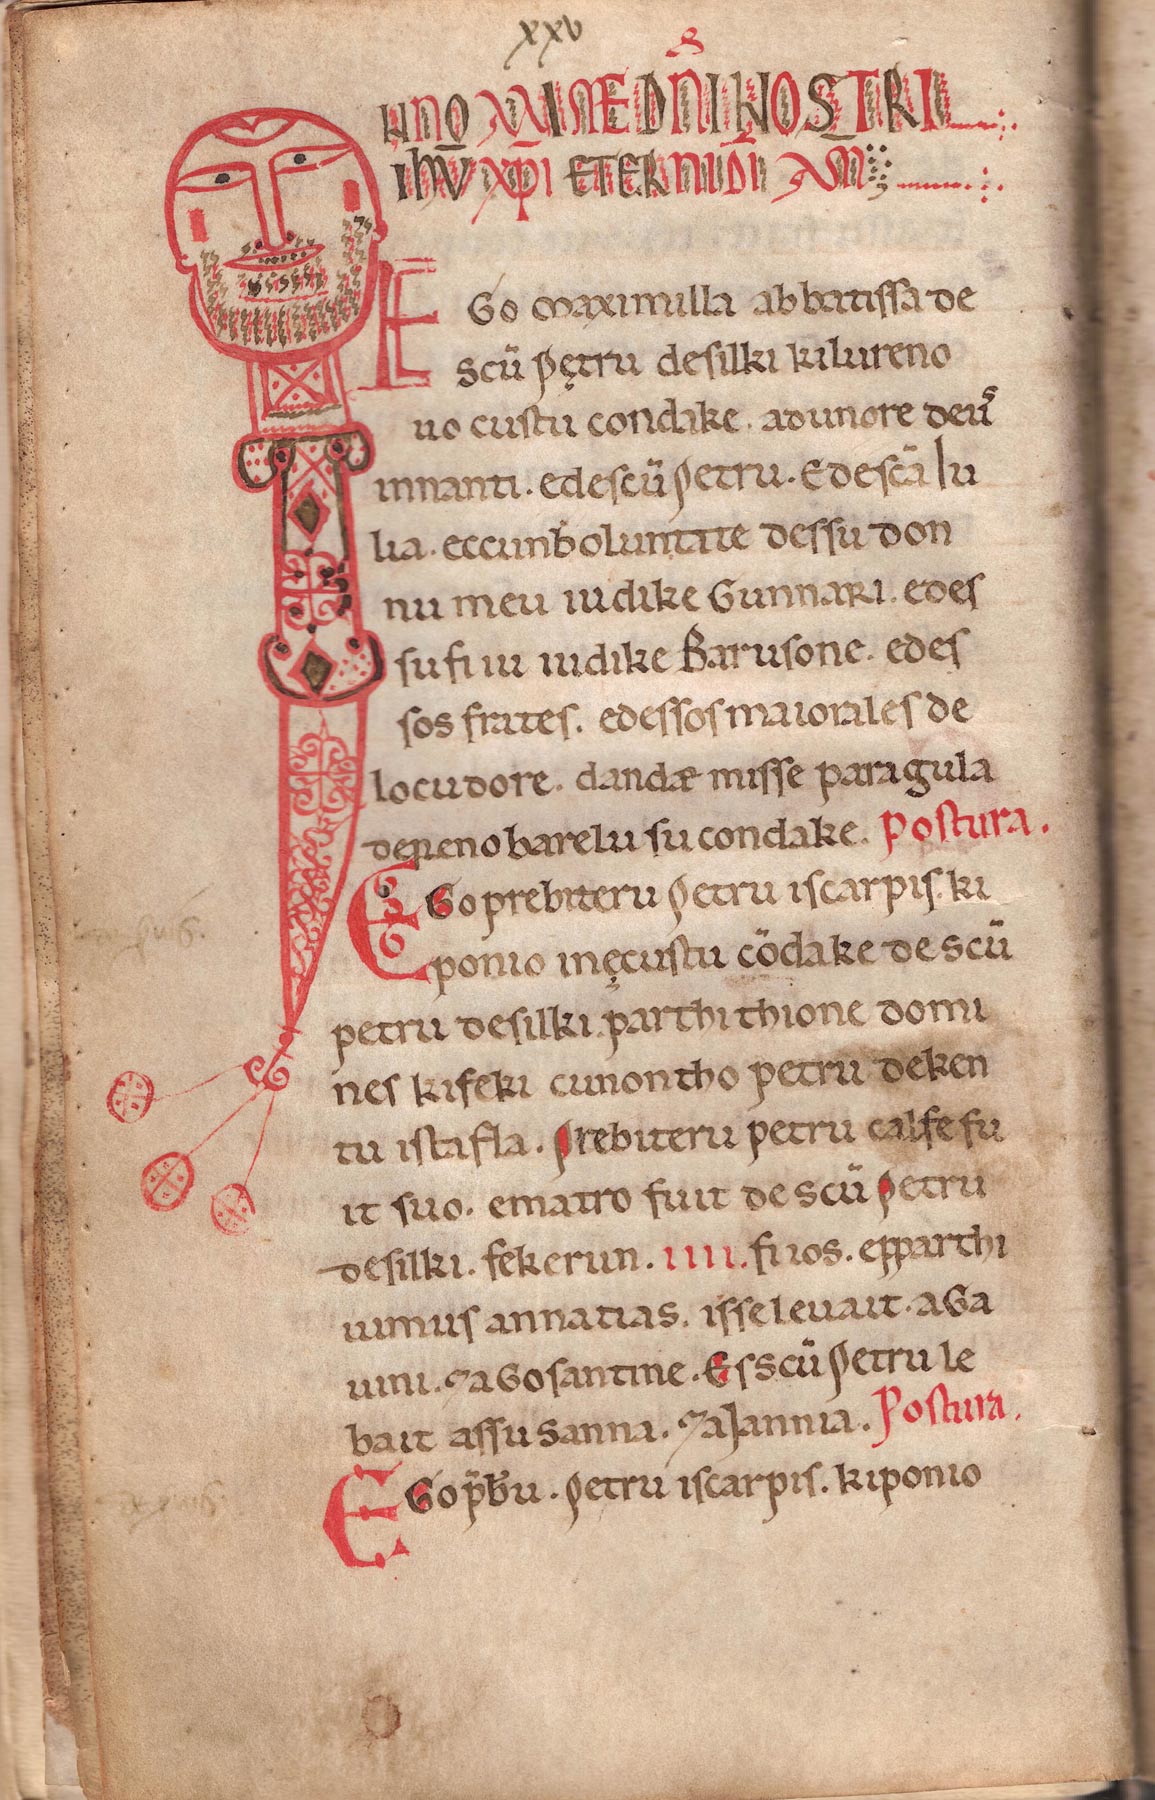 xxv
IN NOMINE DÑI NOSTRI
IHU XPI ETERNI DI AM
EGo maximilla abbatissa de
scũ pẹtru desilki kilureno
uo custu condake. adunore deũ
innanti. edescũ petru. Edescã lu
lia. eccunboluntate dessu don
nu meu iudike Gunnari. edes
su fiiu iudike Barusone. edes
sos frates. edessos maiorales de
locudore. dandæ misse paragula
derenobarelu su condake. Postura.
EGo prebiteru petru iscarpis. ki
ponio inęcustu cõdake de scũ
petru desilki. parthithione domi
nes kifeki cunontho petru deken
tu istafla. Prebiteru petru calfe fu
it suo. ematro fuit de scũ petru
desilki. fekerun. IIII. fiios. epparthi
uimus annatias. isse leuait. aGa
uini. ⁊aGosantine. Es scũ petru le
bait assusanna. ⁊aJannia. Postura.
EGo p̃b̃u. petru iscarpis. kiponio